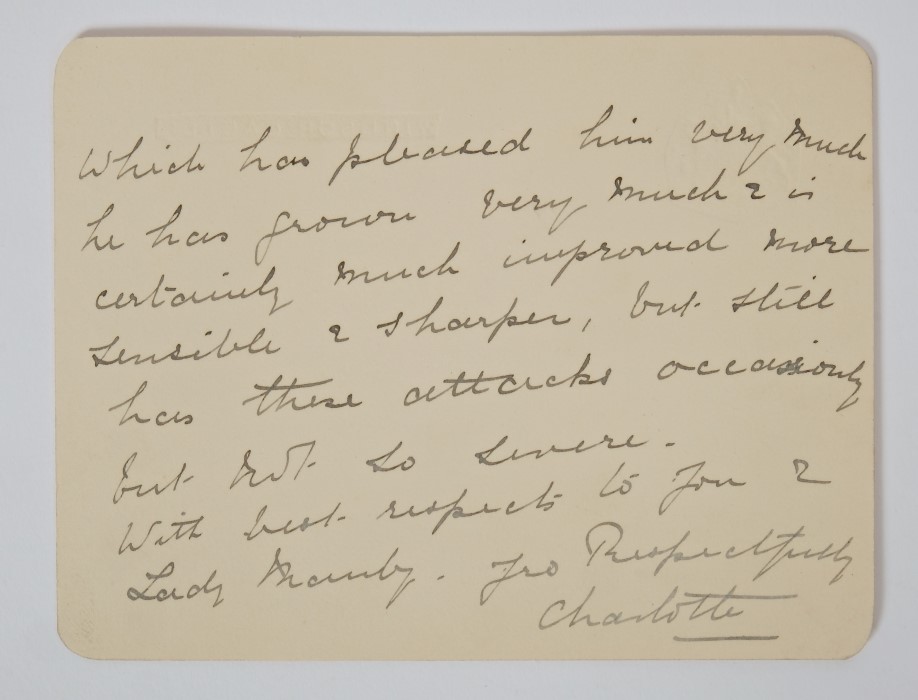 Which has pleased him very much
he has grown very much & is
certainly much improved more
sensible & sharper, but still
has these attacks occasionly
but not so severe.
With best respects to you &
Lady Manby. Yrs Respectfully
Charlotte